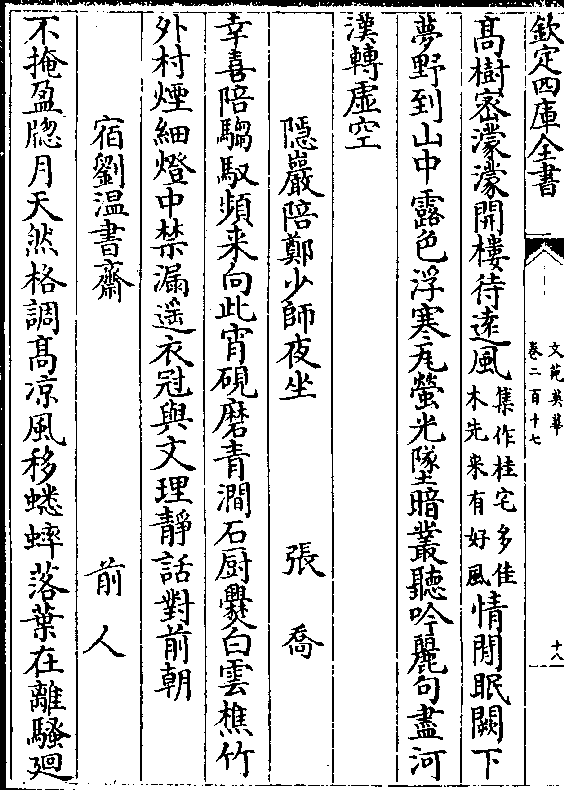 欽定四庫全書
文苑英華
卷二百十七
十八
髙樹宻濛濛開樓待逺風集作桂宅多佳木先来有好風情閒眠闕下
夢野到山中露色浮寒瓦螢光墜暗叢聽吟麗句盡河
漢轉虛空
隱巖陪鄭少師夜坐　張喬
幸喜陪騶馭頻来向此宵硯磨青澗石厨爨白雲樵竹
外村煙細燈中禁漏遥衣冠與文理靜話對前朝
宿劉溫書齋　前人
不掩盈牕月天然格調髙凉風移蟋蟀落葉在離騷廻